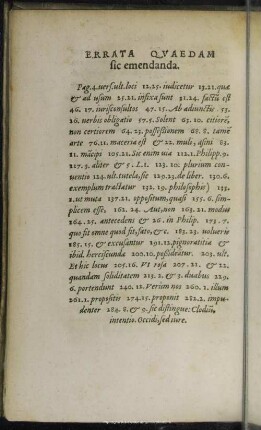 ERRATA QVAEDAM
sic emendanda.
Pag. 4. vers. ult. loci 12.25. iudicetur 23.21. quæ
& ad usum 25.21. infixa sunt 31.24. factū est
46. 17. iurisconsultos 47.15. Ab adiunctis 53.
26. uerbis obligatio 57.5. Solent 63. 10. citiorē,
non certiorem 64. 23. possessionem 68. 8. tamē
arte 76.11. materia est & 22. muli, asini 83.
21. mācipi 105.21. Sic enim uia 112.1. Philipp. 9.
117.3. aliter & 5. L.I. 123. 10. plurium con-
uentio 124. ult. tutela, sic 129.23. de liber. 130.6.
exemplum tractatur 132. 19. philosophię) 133.
2. ut muta 137.21. oppositum, quasi 155. 6. sim-
plicem esse, 162. 24. autut, non 163. 21. modus
164. 25. antecedens & 26. in Philip. 173. 7.
quo sit omne quod sit, fato, &c. 183. 23. uoluerit
185. 15. & excusantur 191. 12. pignoratitia &
ibid. herciscunda 200.10. possidetur. 203. ult.
Et hic locus 205.16. Vt rosa 207. 21. & 22.
quandam soliditatem 213. 2. & 3. duabus 229.
6. portendunt 240. 12. Verum nos 260. 2. illum
261.1. propositis 274.15. proponit 282.2. impu-
denter 284. 8. & 9. sic distingue: Clodiū,
intentio. Occidi, sed iure.